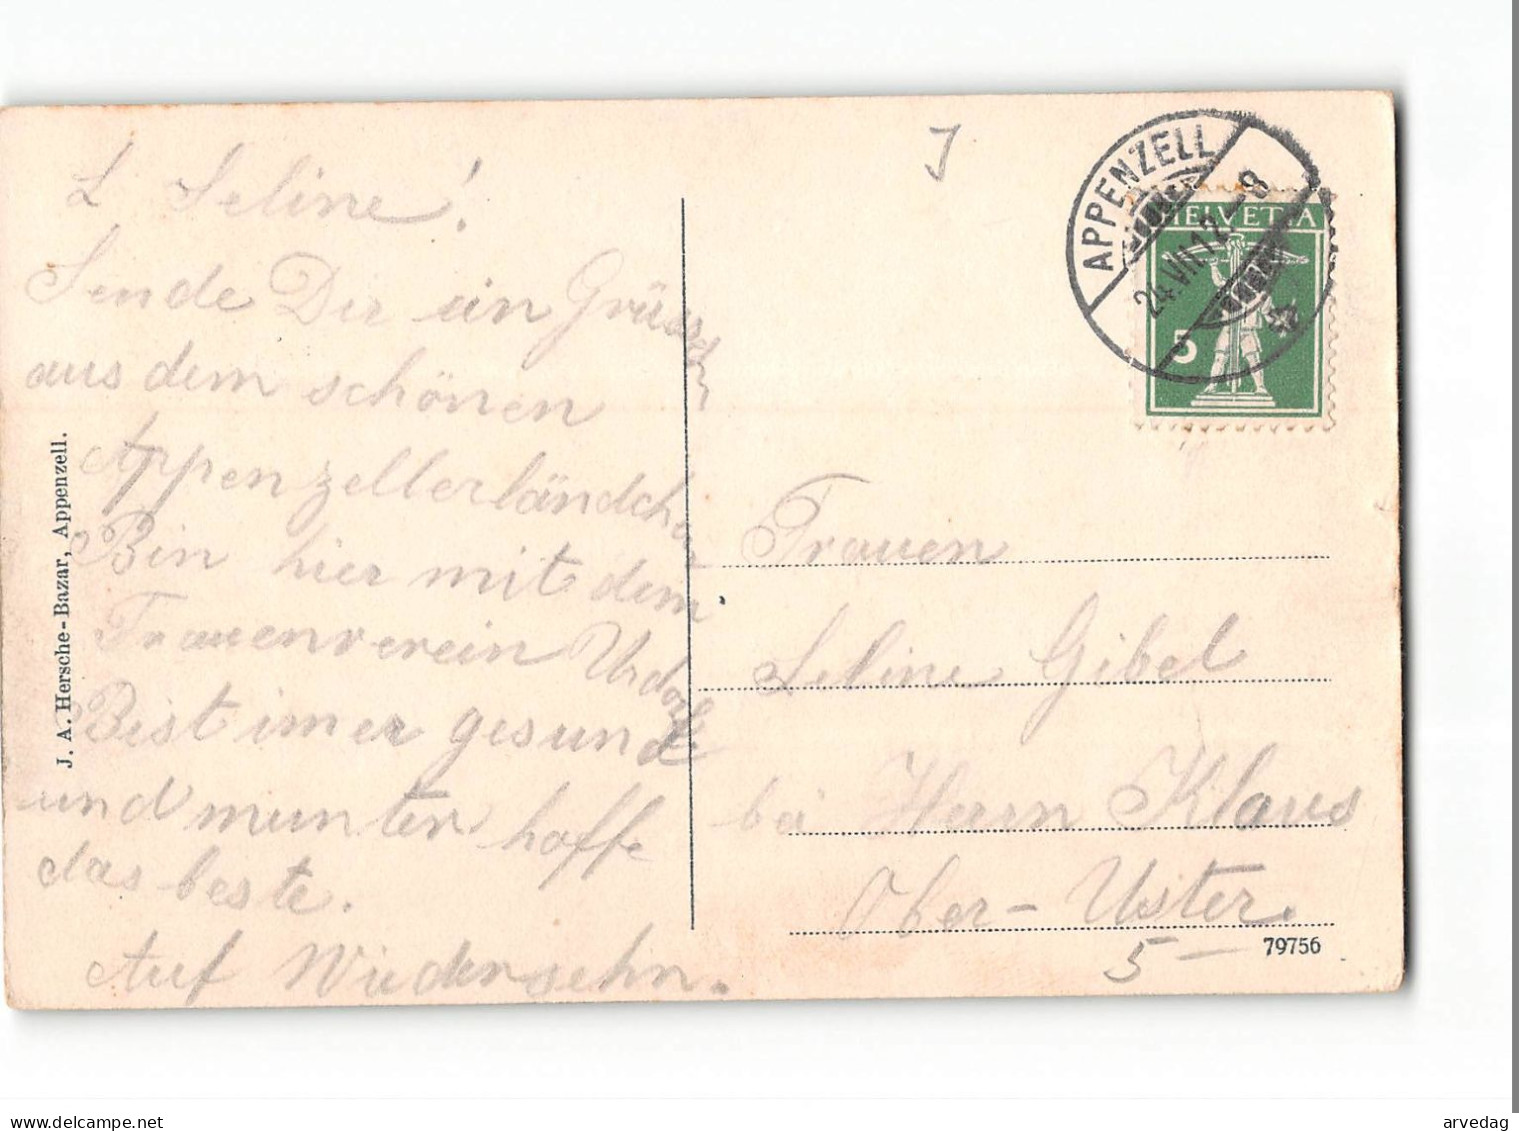 L Seline!
Sende Dir ein Grüsschen
aus dem schönen
Appenzellerländchen
Bin hier mit dem
Frauenverein Urdorf
Bist imer gesund
und munter hoffe
das beste.
Auf Wiedersehn.
J. A. Hersche-Bazar, Appenzell.
J
APPENZELL
24.VII.12.-8
HELVETIA
5
Frauen
Seline Gibel
bei Herrn Klaus
Ober-Uster.
5 —
79756
delcampe.net
arvedag